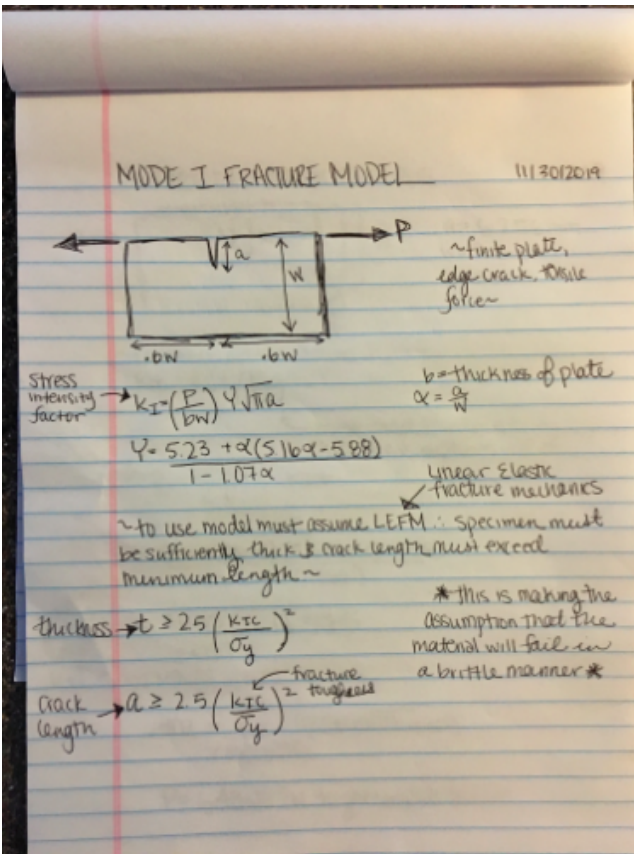 MODE I FRACTURE MODEL 11/30/2019
P
a
W
.6W .6W
~finite plate,
edge crack, tensile
force~
stress
intensity
factor
K_I = (P/bw) Y √πa
b = thickness of plate
α = a/w
Y = 5.23 + α(5.16α - 5.88) / 1 - 1.07α
Linear Elastic
fracture mechanics
~to use model must assume LEFM ∴ specimen must
be sufficiently thick & crack length must exceed
minimum length~
thickness → t ≥ 2.5 (K_IC/σ_y)²
* this is making the
assumption that the
material will fail in
a brittle manner *
fracture
toughness
crack
length → a ≥ 2.5 (K_IC/σ_y)²